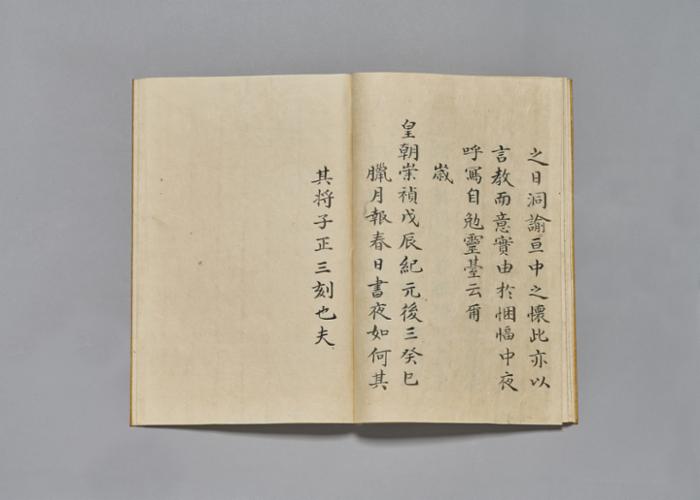 之日洞諭亘中之懷此亦以
言敎而意實由於悃愊中夜
呼寫自勉靈臺云爾
歲
皇朝崇禎戊辰紀元後三癸巳
臘月報春日書夜如何其
其将子正三刻也夫